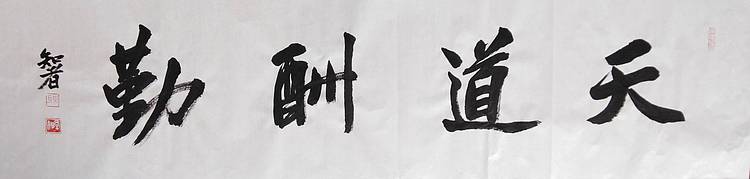 天道酬勤
智者